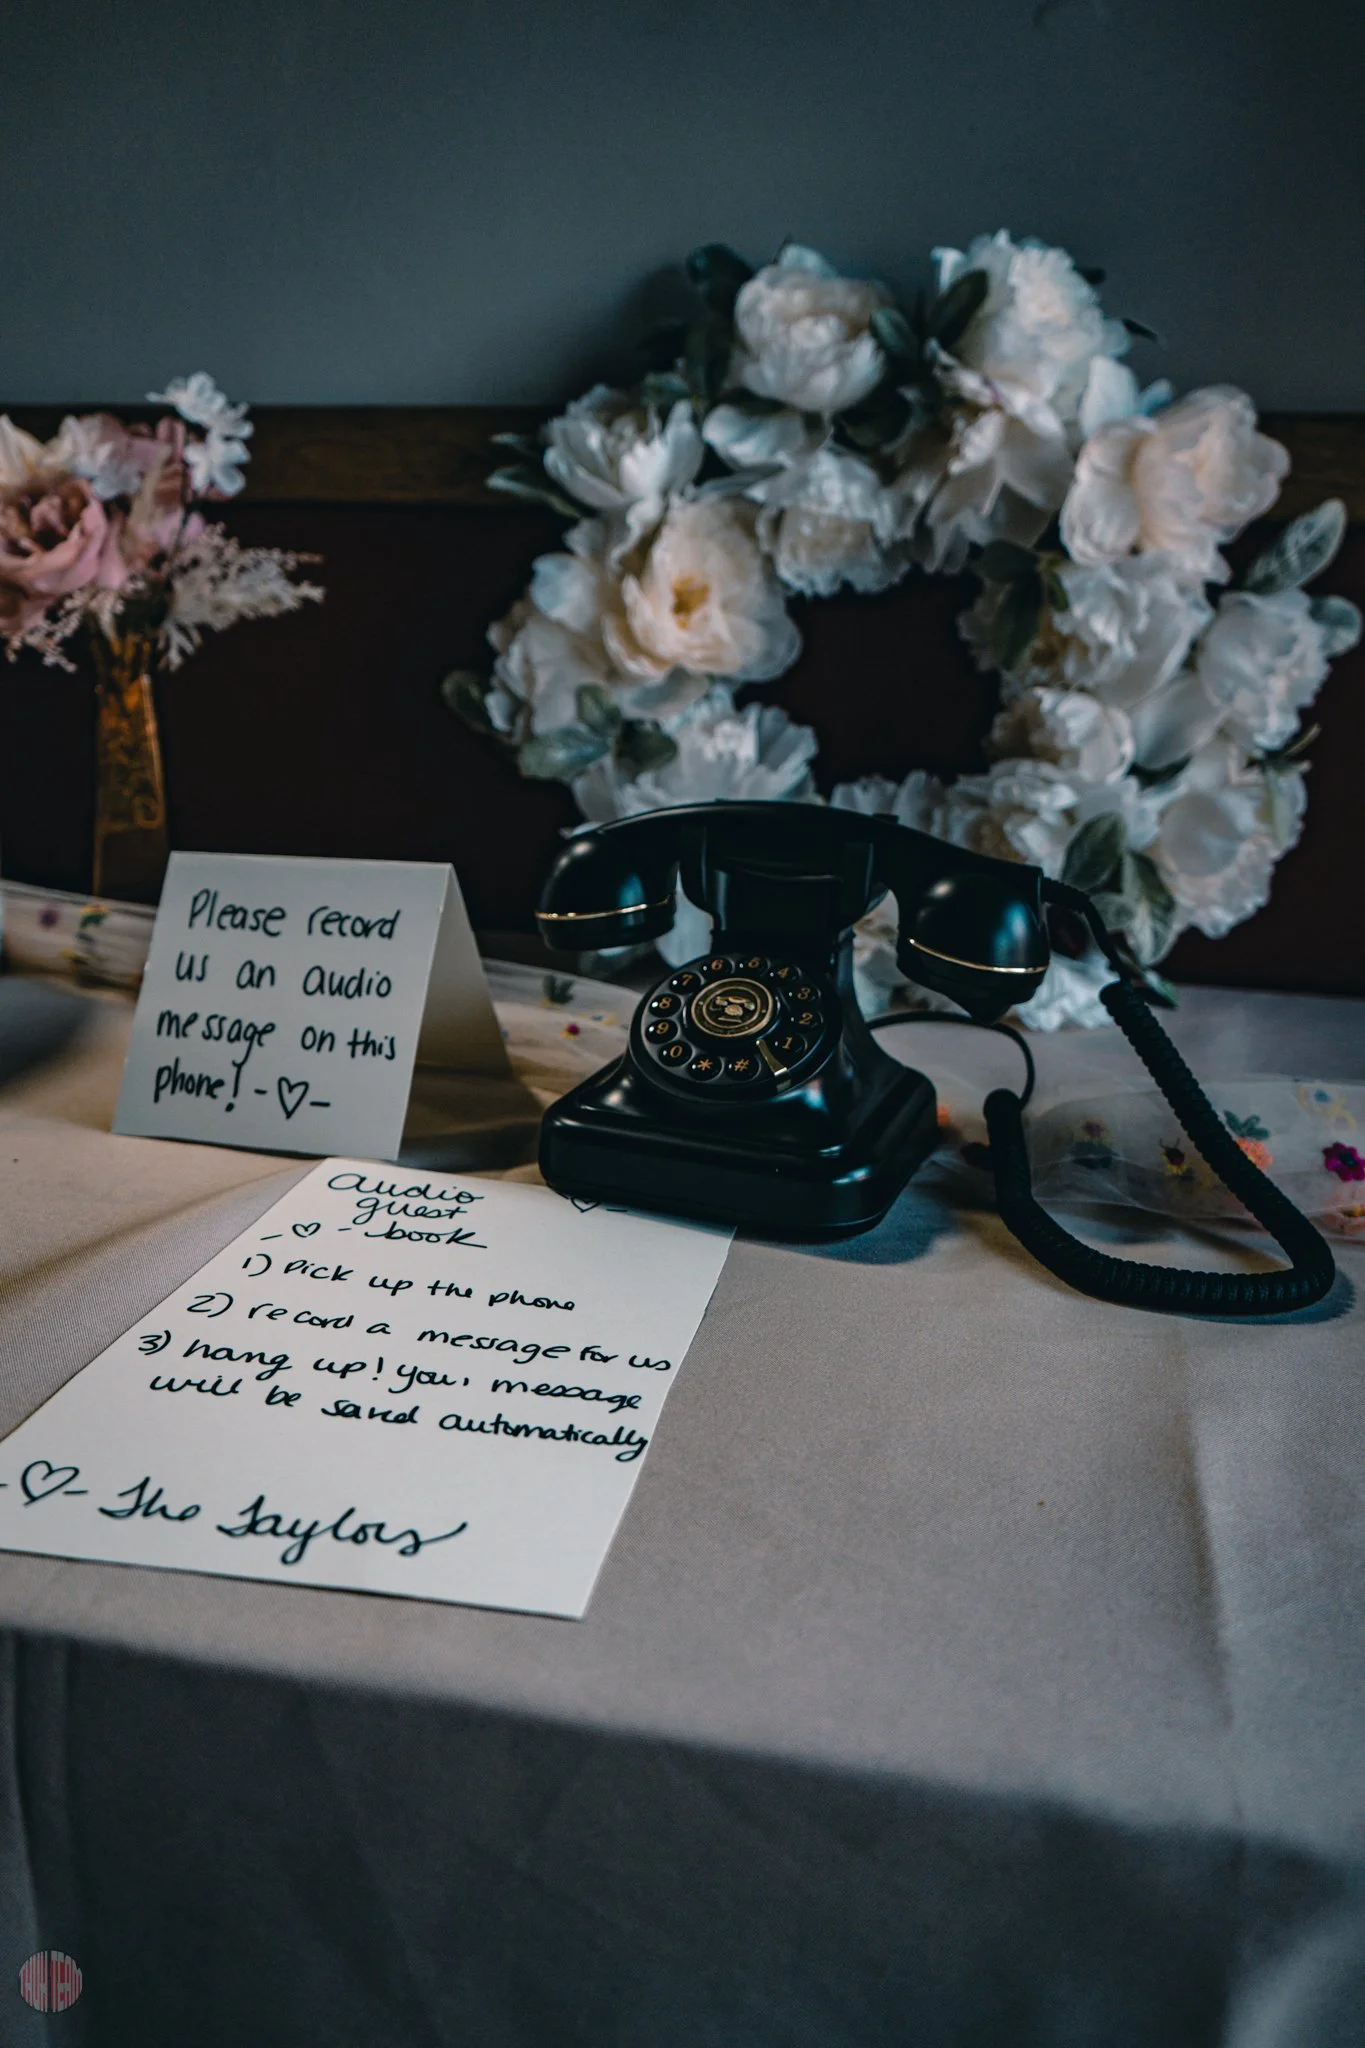 Please record
us an audio
message on this
phone! -♡-
audio
guest
-♡- book -♡-
1) pick up the phone
2) record a message for us
3) hang up! your message
will be saved automatically
-♡- The Taylors
7 6 5 4 3 2 1
8 9 0 * #
THUH TEAM